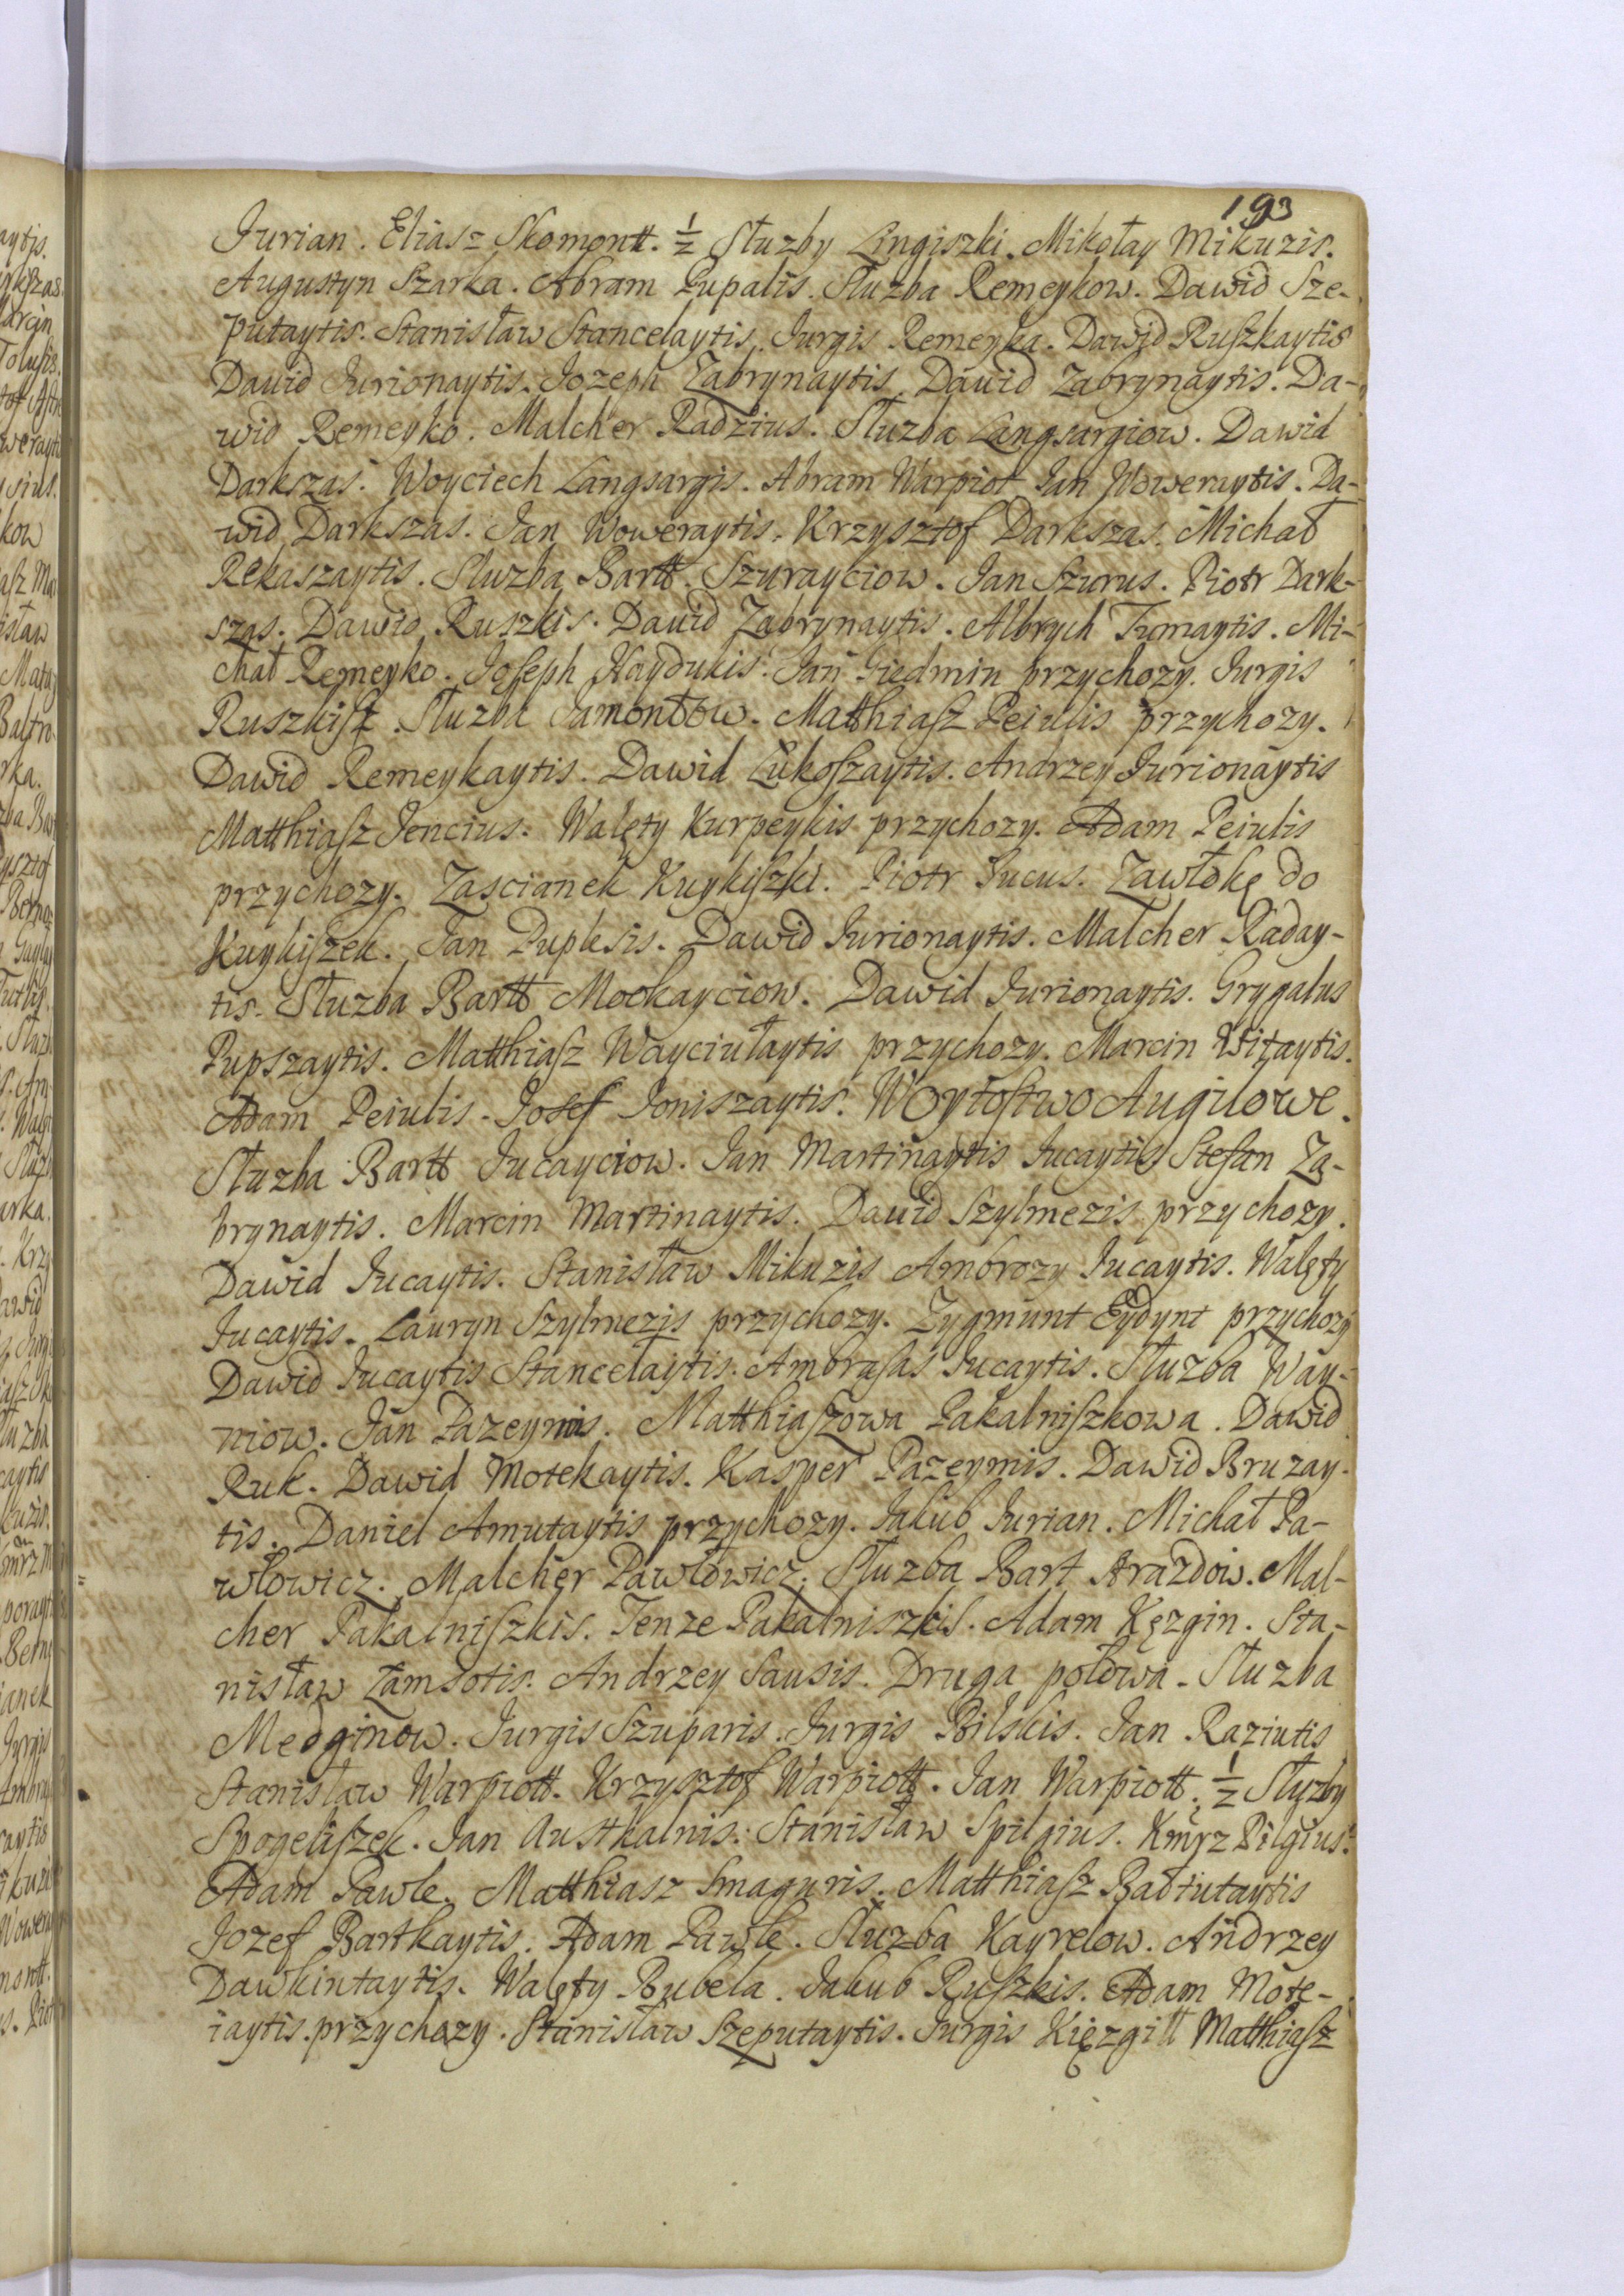 193
Jurian. Eliasz Skomontt. ½ Służby Lingiszki. Mikołay Mikuzis.
Augustyn Szarka. Abram Pupalis. Służba Remeykow. Dawid Sze-
putaytis. Stanisław Stancelaytis. Jurgis Remeyka. Dawid Ruszkaytis
Dauid Jurionaytis. Jozeph Zabrynaytis Dauid Zabrynaytis. Da-
wid Remeyko. Malcher Radzius. Służba Langsargiow. Dawid
Darkszas. Woyciech Langsargis. Abram Warpiot Jan Woweraytis. Da-
wid Darkszas. Jan Woweraytis. Krzysztof Darkszas. Michał
Rekaszaytis. Służba Bartt. Szurayciow. Jan Szurus. Piotr Dark-
szas. Dawid Ruszkis. Dauid Zabrynaytis. Albrych Tumaytis. Mi-
chał Remeyko. Joseph Haydukis. Jan Giedmin przychozy. Jurgis
Ruszkisz. Służba Jamontow. Matthiasz Peiulis przychozy.
Dawid Remeykaytis. Dawid Lukoszaytis. Andrzey Jurionaytis
Matthiasz Jencius. Walęty Kurpeykis przychozy. Adam Peiulis
przychozy. Zascianek Kuykiszki. Piotr Jucus. Zawłokę do
Kuykiszek. Jan Puplesis. Dawid Jurionaytis. Malcher Raday-
tis. Służba Bartt Mockayciow. Dawid Jurionaytis. Grygalus
Pupszaytis. Matthiasz Wayciułaytis przychozy. Marcin Witaytis.
Adam Peiulis. Josef Joniszaytis. Woytostwo Augilowe.
Służba Bartt Jucayciow. Jan Martinaytis Jucaytis Stefan Za-
brynaytis. Marcin Martinaytis. Dauid Szylmezis przychozy.
Dawid Jucaytis. Stanisław Mikuzis Ambrozy Jucaytis. Walęty
Jucaytis. Lauryn Szylmezis przychozy. Zygmunt Eydynt przychozy
Dawid Jucaytis Stancełaytis. Ambrasas Jucaytis. Służba Way-
niow. Jan Pazeymis. Matthiaszowa Pakalniszkowa. Dawid
Ruk. Dawid Motekaytis. Kasper Pazeymis. Dawid Bruzay-
tis. Daniel Amutaytis przychozy. Jakub Jurian. Michał Pa-
włowicz. Malcher Pawłowicz. Służba Bart Arazdow. Mal-
cher Pakalniszkis. Tenze Pakalniszkis. Adam Kęzgin. Sta-
nisław Łamsotis. Andrzey Sausis. Druga połowa. Służba
Medginow. Jurgis Szuparis. Jurgis Bilskis. Jan Raziutis
Stanisław Warpiott. Krzysztof Warpiott. Jan Warpiott. ½ Służby
Spogeliszek. Jan Austkalnis. Stanisław Spilgius. Kmrz Pilgius.
Adam Pawle. Matthiasz Smaguris. Matthiasz Bałtutaytis
Jozef Bartkaytis. Adam Pawle. Służba Kayrelow. Andrzey
Dawkintaytis. Walęty Bubela. Jakub Ruszkis. Adam Mote-
iaytis. przychozy. Stanisław Szeputaytis. Jurgis Kięzgiłł Matthiasz